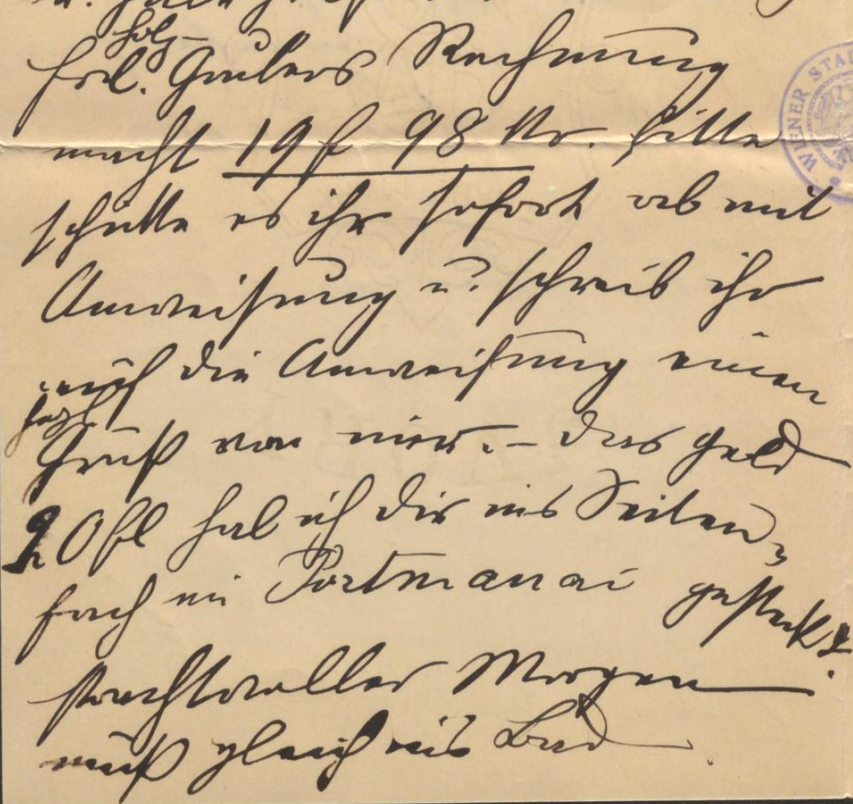 Frl. Holz-
Grubers Rechnung
macht 19 f 98 Kr. bitte
schicke es ihr sofort ab mit
Anweisung u. schreib ihr
auf die Anweisung einen
herzl
Gruß von mir. – das Geld
20 fl hab ich dir ins Seiten-
fach im Portmanai gesteckt.
Prachtvoller Morgen
muß gleich ins Bad.
WIENER STAD